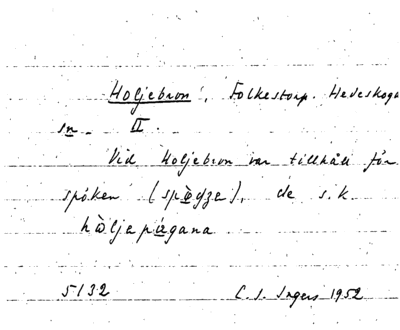 Holjebron, Folkestorp. Hedeskoga
sn. II.
Vid Holjebron var tillhåll för
spöken (spøgza), de s.k.
hòljapàgana
5132 C. I. Ingers 1952